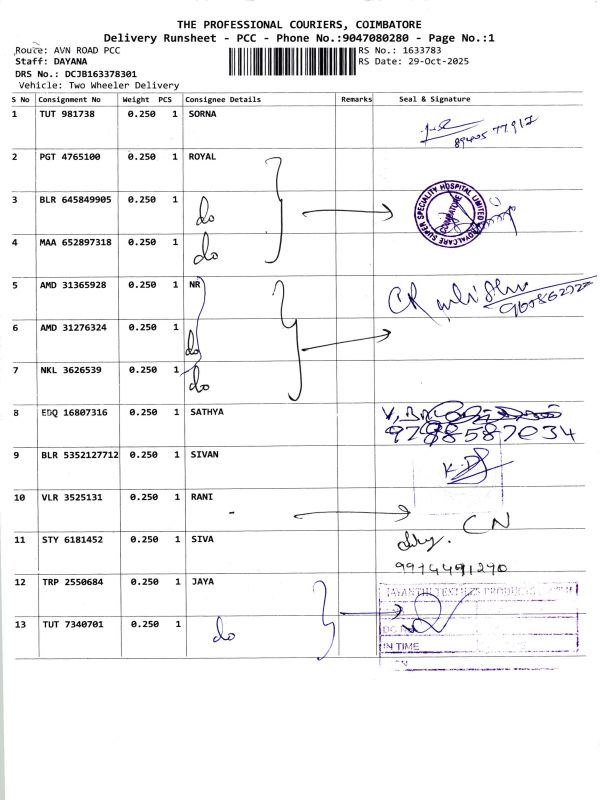 THE PROFESSIONAL COURIERS, COIMBATORE
Delivery Runsheet - PCC - Phone No.:9047080280 - Page No.:1
Route: AVN ROAD PCC RS No.: 1633783
Staff: DAYANA RS Date: 29-Oct-2025
DRS No.: DCJB163378301
Vehicle: Two Wheeler Delivery
S No Consignment No Weight PCS Consignee Details Remarks Seal & Signature
1 TUT 981738 0.250 1 SORNA
2 PGT 4765100 0.250 1 ROYAL
3 BLR 645849905 0.250 1 do
ROYALCARE SUPER SPECIALITY HOSPITAL LIMITED
COIMBATORE
4 MAA 652897318 0.250 1 do
5 AMD 31365928 0.250 1 NR CR
6 AMD 31276324 0.250 1 do
7 NKL 3626539 0.250 1 do
8 EDQ 16807316 0.250 1 SATHYA
9788587034
9 BLR 5352127712 0.250 1 SIVAN K.D
10 VLR 3525131 0.250 1 RANI
CN
11 STY 6181452 0.250 1 SIVA
9974491290
12 TRP 2550684 0.250 1 JAYA JAYANTHI TEXTILES PRODUCTS
13 TUT 7340701 0.250 1 do
IN TIME